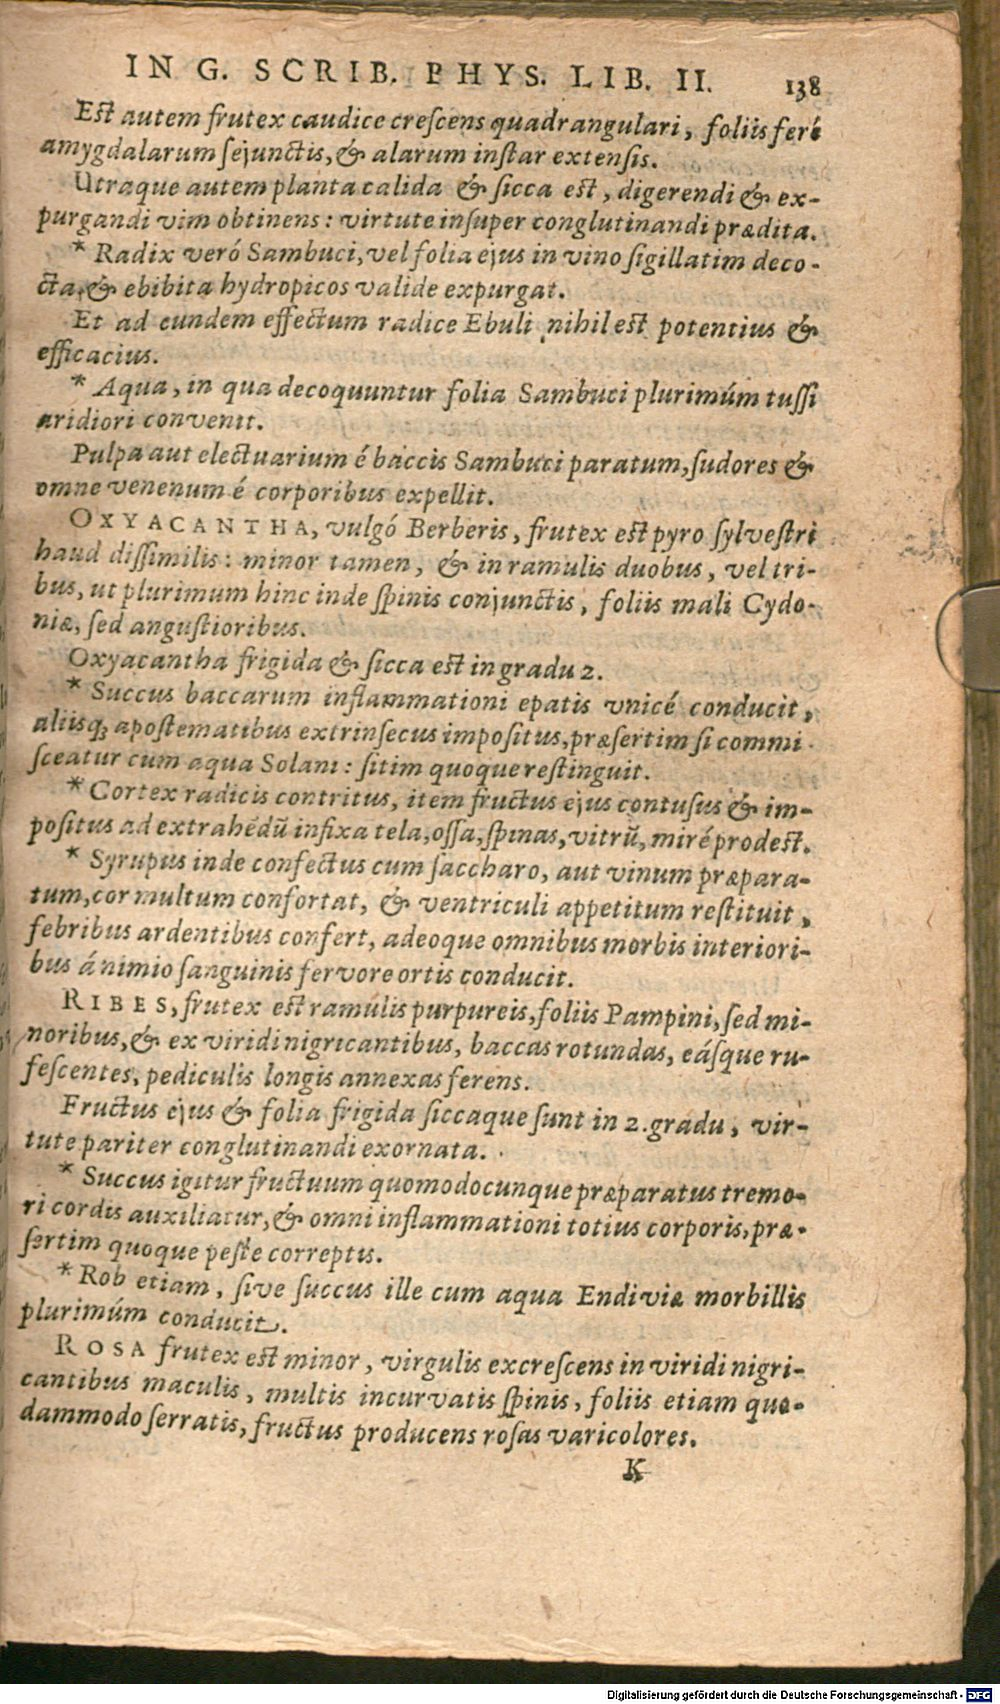 IN G. SCRIB. PHYS. LIB. II. 138
Est autem frutex caudice crescens quadrangulari, foliis feré
amygdalarum sejunctis, & alarum instar extensis.
Utraque autem planta calida & sicca est, digerendi & ex-
purgandi vim obtinens: virtute insuper conglutinandi prædita.
* Radix veró Sambuci, vel folia ejus in vino sigillatim deco-
cta, & ebibita hydropicos valide expurgat.
Et ad eundem effectum radice Ebuli nihil est potentius &
efficacius.
* Aqua, in qua decoquuntur folia Sambuci plurimúm tussi
aridiori convenit.
Pulpa aut electuarium é baccis Sambuci paratum, sudores &
omne venenum é corporibus expellit.
OXYACANTHA, vulgó Berberis, frutex est pyro sylvestri
haud dissimilis: minor tamen, & in ramulis duobus, vel tri-
bus, ut plurimum hinc inde spinis conjunctis, foliis mali Cydo-
niæ, sed angustioribus.
Oxyacantha frigida & sicca est in gradu 2.
* Succus baccarum inflammationi epatis vnicé conducit,
aliisq; apostematibus extrinsecus impositus, præsertim si commi-
sceatur cum aqua Solani: sitim quoque restinguit.
* Cortex radicis contritus, item fructus ejus contusus & im-
positus ad extrahēdū infixa tela, ossa, spinas, vitrū, miré prodest.
* Syrupus inde confectus cum saccharo, aut vinum præpara-
tum, cor multum confortat, & ventriculi appetitum restituit,
febribus ardentibus confert, adeoque omnibus morbis interiori-
bus á nimio sanguinis fervore ortis conducit.
RIBES, frutex est ramulis purpureis, foliis Pampini, sed mi-
noribus, & ex viridi nigricantibus, baccas rotundas, eásque ru-
fescentes, pediculis longis annexas ferens.
Fructus ejus & folia frigida siccaque sunt in 2. gradu, vir-
tute pariter conglutinandi exornata.
* Succus igitur fructuum quomodocunque præparatus tremo-
ri cordis auxiliatur, & omni inflammationi totius corporis, præ-
sertim quoque peste correptis.
* Rob etiam, sive succus ille cum aqua Endiviæ morbillis
plurimúm conducit.
ROSA frutex est minor, virgulis excrescens in viridi nigri-
cantibus maculis, multis incurvatis spinis, foliis etiam quo-
dammodo serratis, fructus producens rosas varicolores.
K
Digitalisierung gefördert durch die Deutsche Forschungsgemeinschaft - DFG